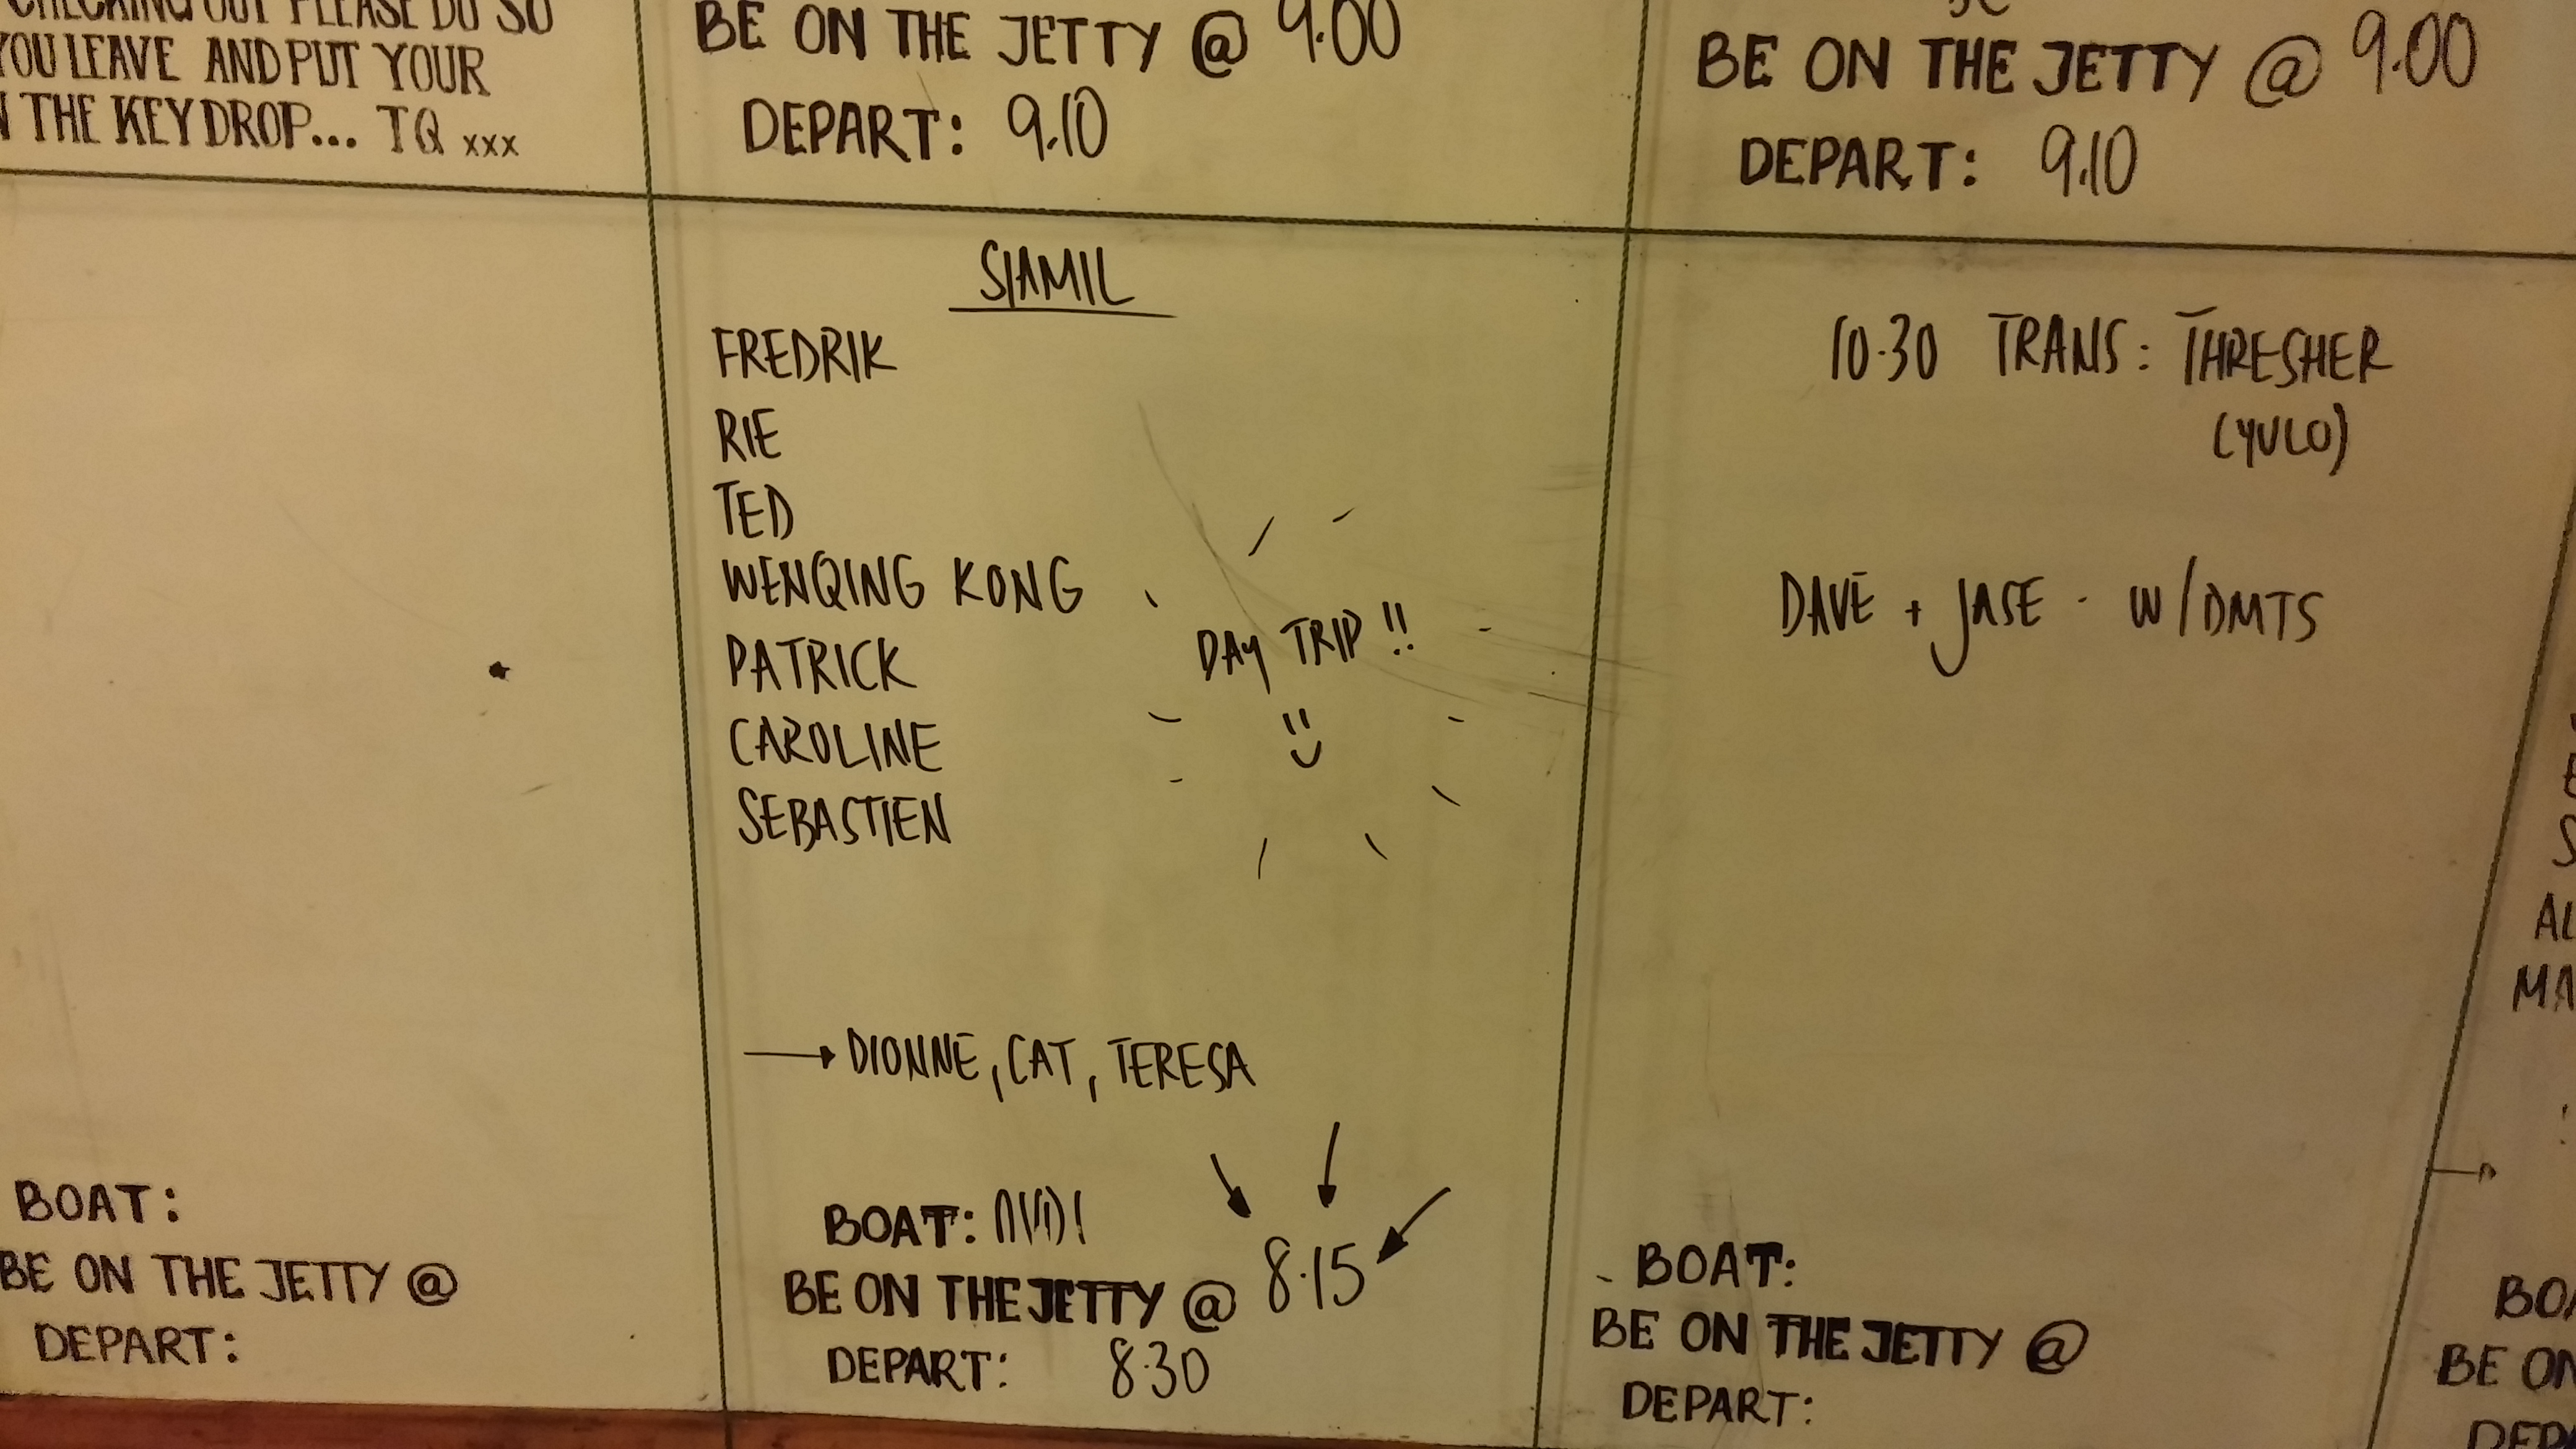 CHECKING OUT PLEASE DO SO
YOU LEAVE AND PUT YOUR
THE KEY DROP... TQ xxx
BE ON THE JETTY @ 9.00
DEPART: 9.10
BE ON THE JETTY @ 9.00
DEPART: 9.10
BOAT:
BE ON THE JETTY @
DEPART:
SIAMIL
FREDRIK
RIE
TED
WENQING KONG
PATRICK
CAROLINE
SEBASTIEN
DAY TRIP!!
→ DIONNE, CAT, TERESA
BOAT:
BE ON THE JETTY @ 8.15
DEPART: 8.30
10.30 TRANS: THRESHER
(YULO)
DAVE + JASE - W/DMTS
BOAT:
BE ON THE JETTY @
DEPART: